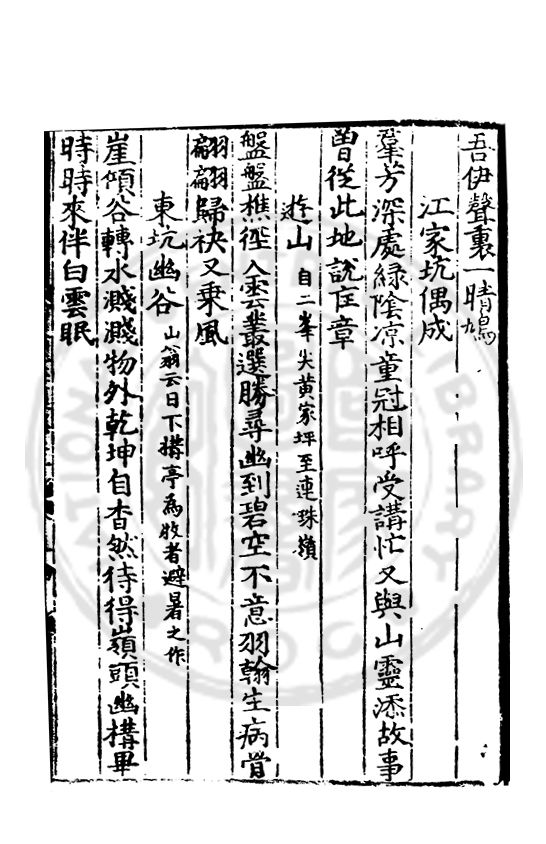 吾伊聲裏一晴鳩
江家坑偶成
羣芳深處綠陰凉童冠相呼受講忙又與山靈添故事
曾從此地說㽵章
遊山自二峯尖黄家坪至連珠嶺
盤盤樵徑入雲叢選勝尋幽到碧空不意羽翰生病骨
翩翩歸袂又乘風
東坑幽谷山翁云日下搆亭為牧者避暑之作
崖傾谷轉水濺濺物外乾坤自杳然待得嶺頭幽構畢
時時來伴白雲眠